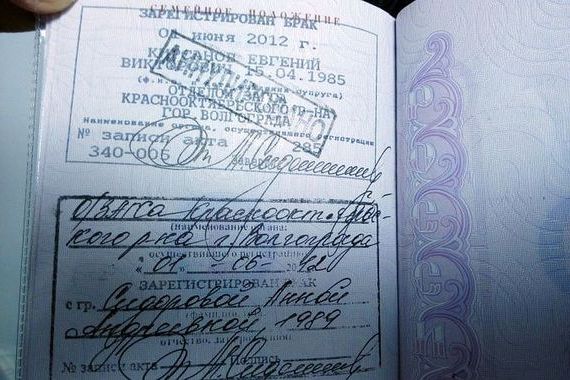 СЕМЕЙНОЕ ПОЛОЖЕНИЕ
ЗАРЕГИСТРИРОВАН БРАК
июня 2012 г.
ЕВГЕНИЙ
ВИКТОРОВИЧ 15.04.1985
ОТДЕЛОМ ЗАГСА
КРАСНООКТЯБРЬСКОГО Р-НА
ГОР. ВОЛГОГРАДА
Наименование органа, осуществившего регистрацию
№ записи акта 285
340-006
О/ЗАГСа Краснооктябрьс-
кого р-на г. Волгограда
(наименование органа,
осуществившего регистрацию)
ЗАРЕГИСТРИРОВАН БРАК
с гр. Сидоровой Анной
Андреевной, 1989
№ записи акта Подпись